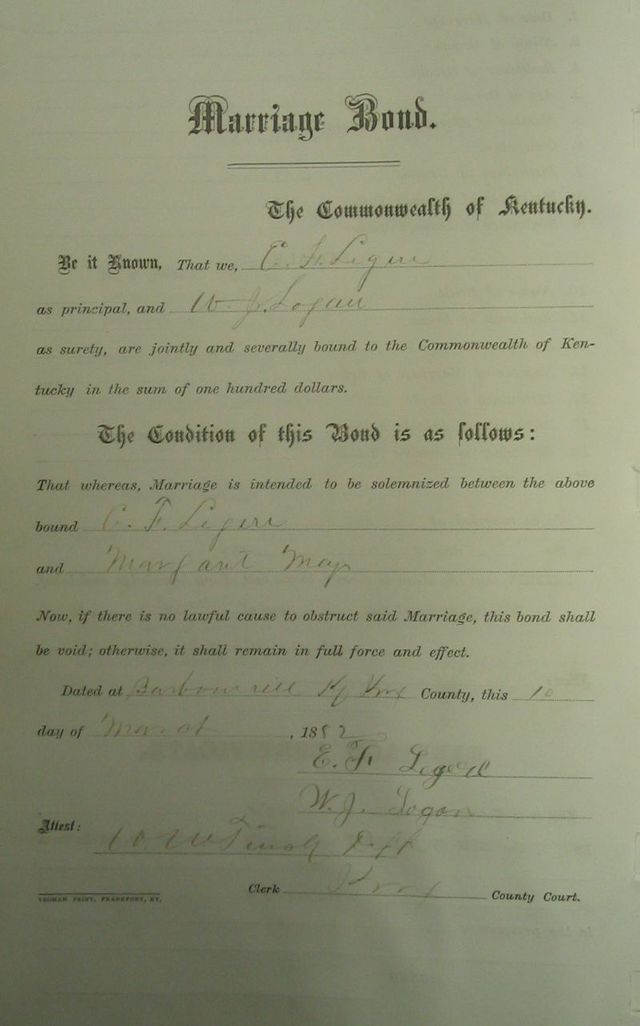 Marriage Bond.
The Commonwealth of Kentucky.
Be it Known, That we, C. F. Legere
as principal, and W. J. Logan
as surety, are jointly and severally bound to the Commonwealth of Ken-
tucky in the sum of one hundred dollars.
The Condition of this Bond is as follows:
That whereas, Marriage is intended to be solemnized between the above
bound C. F. Legere
and Margaret Mays
Now, if there is no lawful cause to obstruct said Marriage, this bond shall
be void; otherwise, it shall remain in full force and effect.
Dated at Barbourville Ky Knox County, this 10
day of March, 1882
E. F. Legere
W. J. Logan
Attest:
Clerk Knox County Court.
YEOMAN PRINT, FRANKFORT, KY.